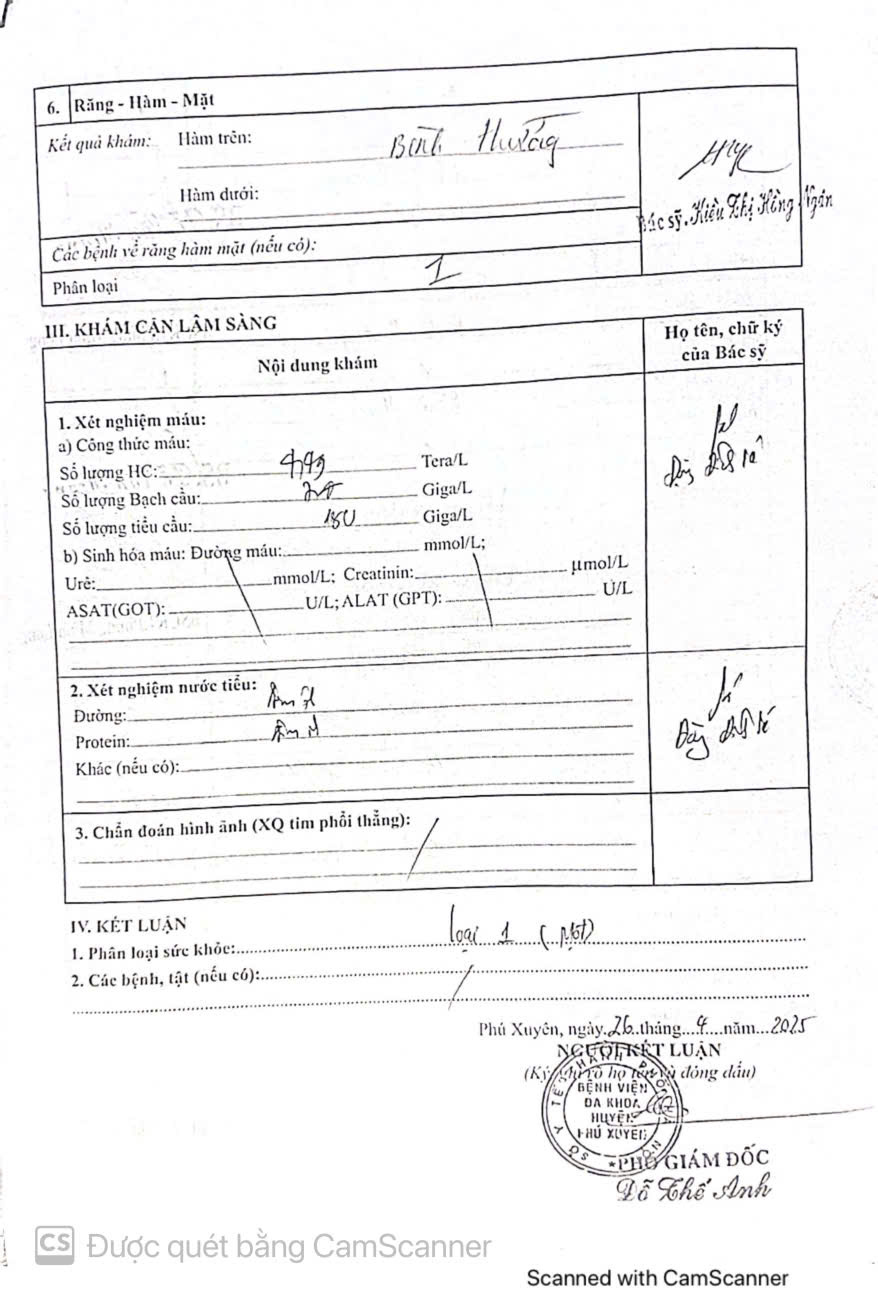 6. Răng - Hàm - Mặt
Kết quả khám: Hàm trên: Bình thường
Hàm dưới:
Bác sỹ. Kiều Thị Hồng Ngân
Các bệnh về răng hàm mặt (nếu có):
Phân loại 1
III. KHÁM CẬN LÂM SÀNG
Nội dung khám
Họ tên, chữ ký
của Bác sỹ
1. Xét nghiệm máu:
a) Công thức máu:
Số lượng HC: Tera/L
Số lượng Bạch cầu: Giga/L
Số lượng tiểu cầu: 180 Giga/L
b) Sinh hóa máu: Đường máu: mmol/L;
Urê: mmol/L; Creatinin: µmol/L
ASAT(GOT): U/L; ALAT (GPT): U/L
2. Xét nghiệm nước tiểu:
Đường: Âm
Protein: Âm
Khác (nếu có):
3. Chẩn đoán hình ảnh (XQ tim phổi thẳng):
IV. KẾT LUẬN
1. Phân loại sức khỏe: loại 1 (Một)
2. Các bệnh, tật (nếu có):
Phú Xuyên, ngày 26 tháng 4 năm 2025
NGƯỜI KẾT LUẬN
(Ký, ghi rõ họ tên và đóng dấu)
BỆNH VIỆN
ĐA KHOA
HUYỆN
PHÚ XUYÊN
PHÓ GIÁM ĐỐC
Đỗ Thế Anh
CS Được quét bằng CamScanner
Scanned with CamScanner